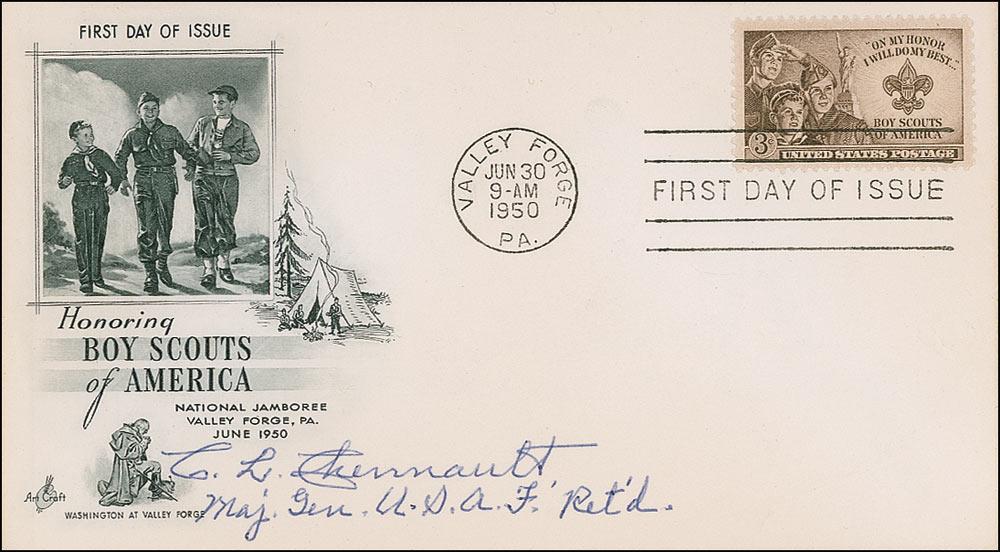 FIRST DAY OF ISSUE
Honoring
BOY SCOUTS
of AMERICA
NATIONAL JAMBOREE
VALLEY FORGE, PA.
JUNE 1950
Art Craft
WASHINGTON AT VALLEY FORGE
C. L. Chennault
Maj. Gen. U.S.A.F. Ret'd.
VALLEY FORGE
JUN 30
9-AM
1950
PA.
"ON MY HONOR
I WILL DO MY BEST..."
BOY SCOUTS
OF AMERICA
3¢
UNITED STATES POSTAGE
FIRST DAY OF ISSUE